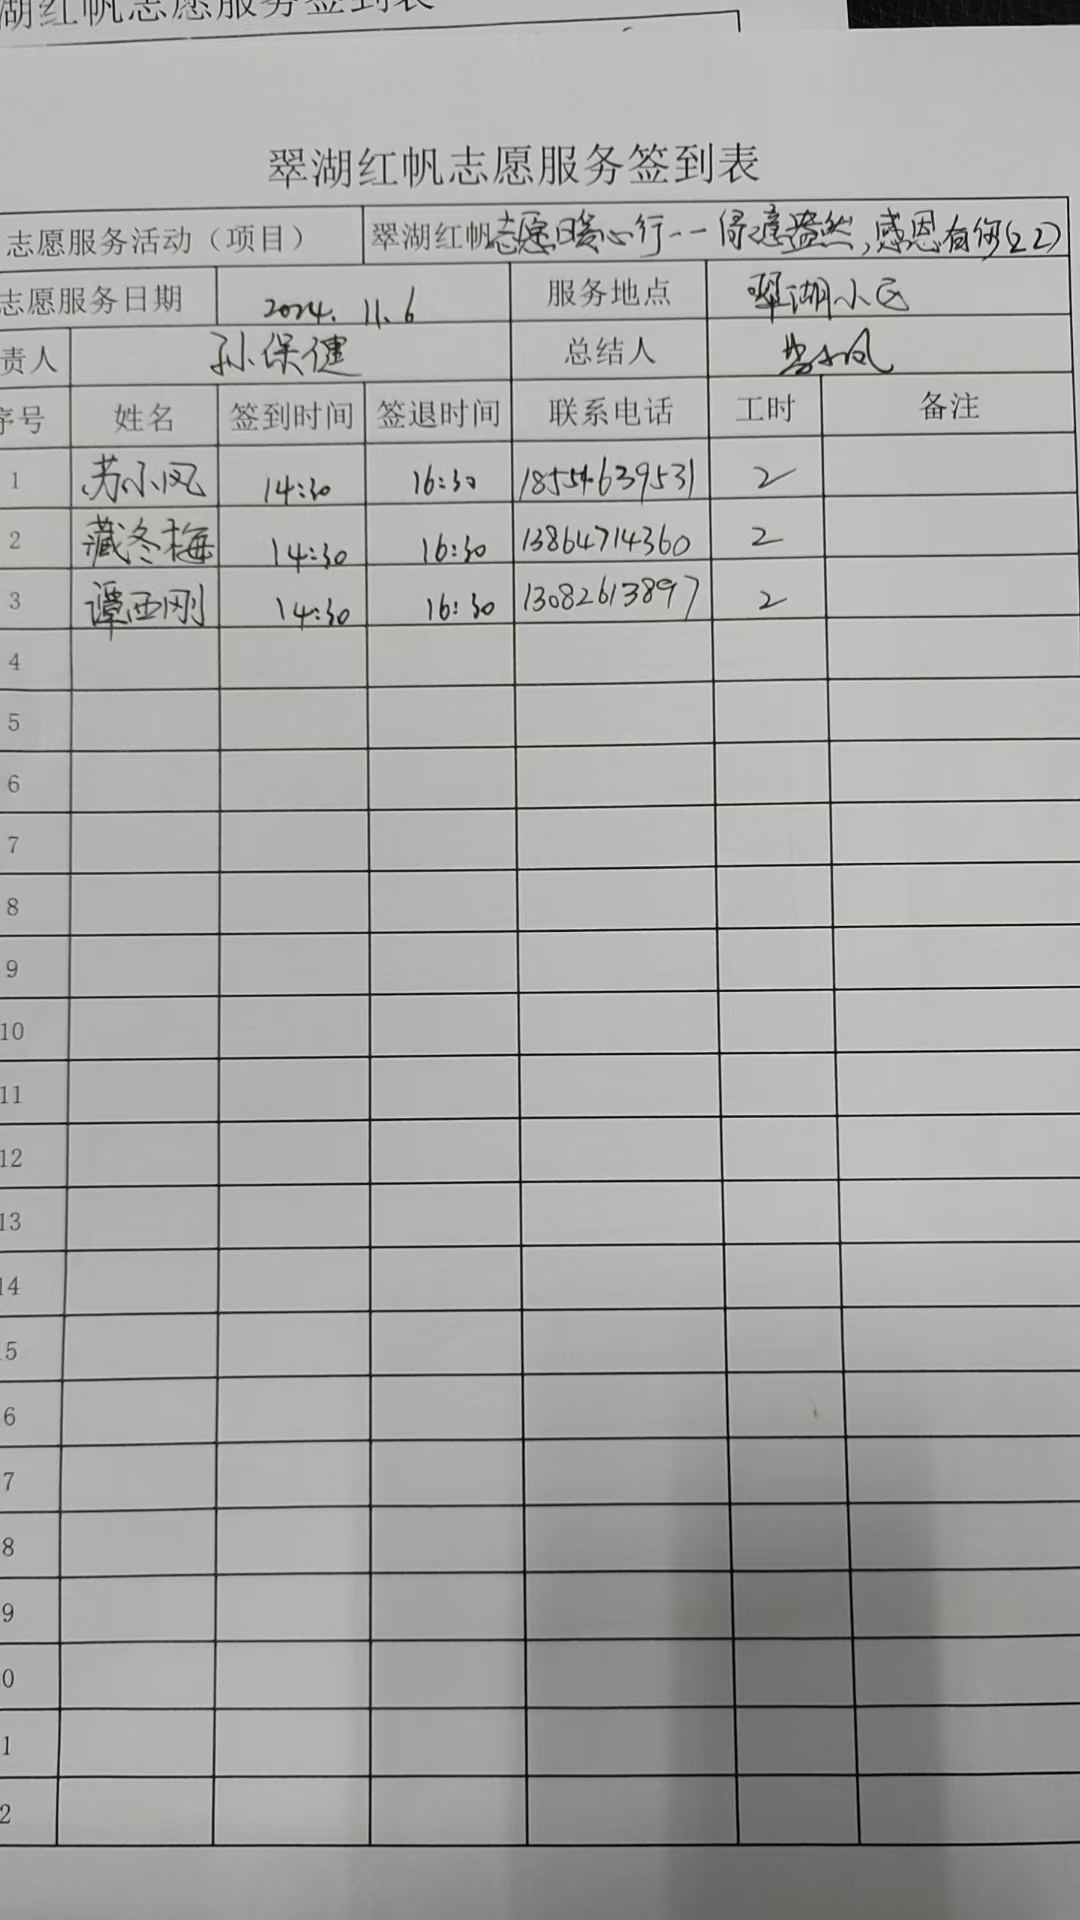 湖红帆志愿服务签到表
翠湖红帆志愿服务签到表
志愿服务活动（项目） 翠湖红帆志愿暖心行--绿意盎然,感恩有你(22)
志愿服务日期 2024.11.6 服务地点 翠湖小区
责人 孙保健 总结人 小凤
序号 姓名 签到时间 签退时间 联系电话 工时 备注
1 苏小凤 14:30 16:30 18554639531 2
2 藏冬梅 14:30 16:30 13864714360 2
3 谭西刚 14:30 16:30 13082613897 2
4
5
6
7
8
9
10
11
12
13
14
5
6
7
8
9
0
1
2